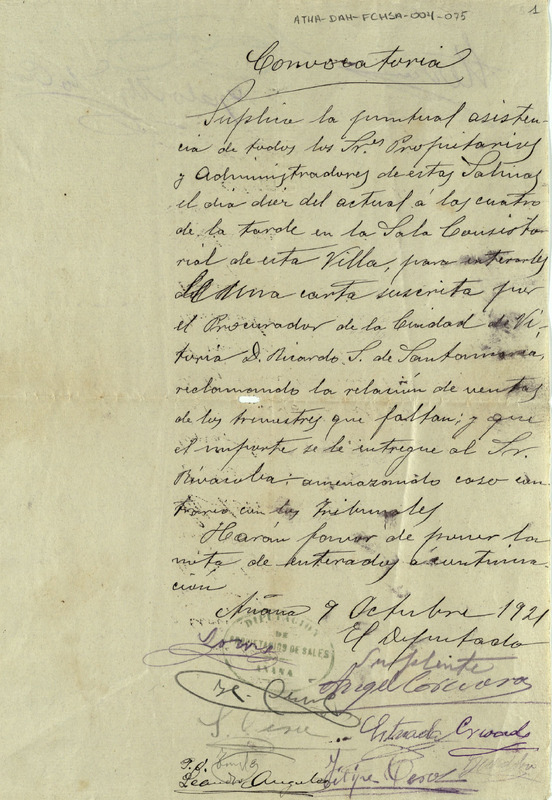 ATHA-DAH-FCHSA-004-075
1
Convocatoria
Suplica la puntual asisten-
cia de todos los Sres Propietarios
y Administradores de estas Salinas
el dia diez del actual á las cuatro
de la tarde en la Sala Consisto-
rial de esta Villa, para enterarles
de una carta suscrita por
el Procurador de la Ciudad de Vi-
toria D. Ricardo S. de Santamaria,
reclamando la relación de ventas
de los trimestres que faltan; y que
el importe se le entregue al Sr.
amenazando caso con-
trario con los Tribunales
Harán favor de poner la
nota de enterados á continua-
ción
Añana 9 Octubre 1921
El Diputado
Suplente
DIPUTACION
DE
PROPIETARIOS DE SALES
AÑANA
Angel
Felipe
Leandro Angulo